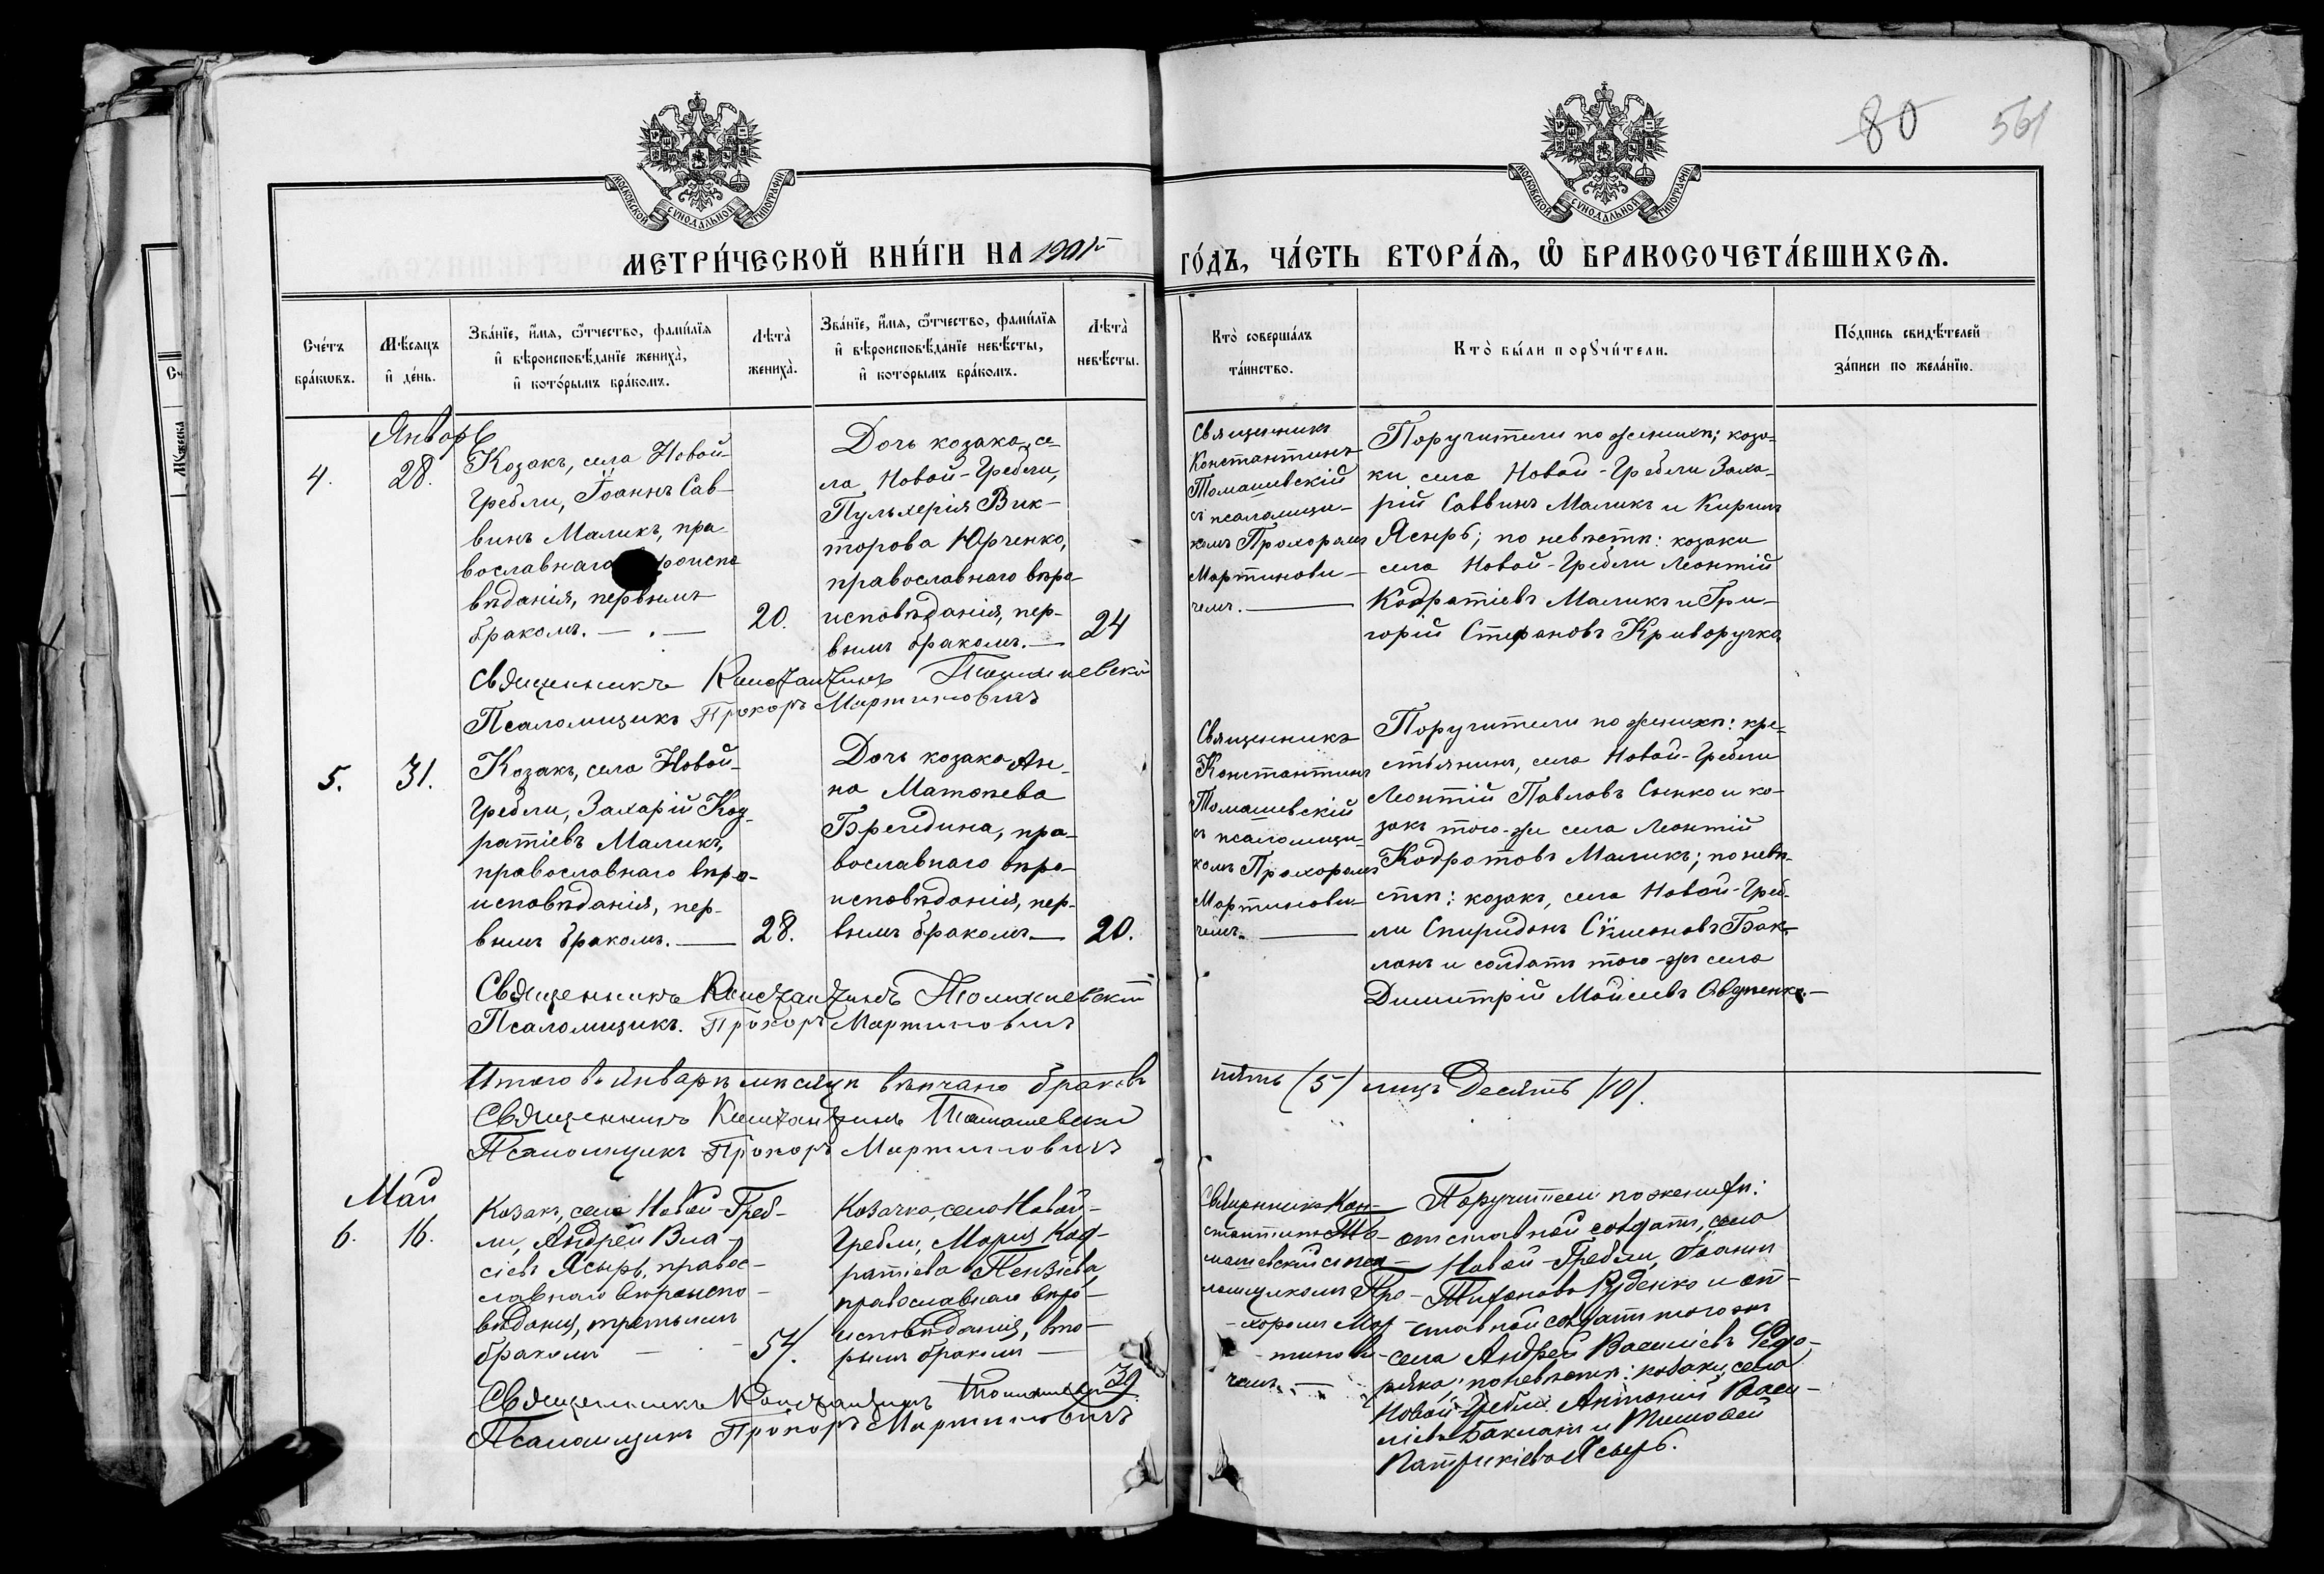 80 561
МОСКОВСКОЙ СѴНОДАЛЬНОЙ ТИПОГРАФІИ
МОСКОВСКОЙ СѴНОДАЛЬНОЙ ТИПОГРАФІИ
МЕТРИ́ЧЕСКОЙ КНИ́ГИ НА 1901й
ГО́ДЪ, ЧА́СТЬ ВТОРА́Ѧ, Ѡ҆ БРАКОСОЧЕТА́ВШИХСѦ.
Сче́тъ
бра́кѡвъ.
Мѣ́сяцъ
и҆ де́нь.
Зва́нїе, и҆́мя, ѻ҆́тчество, фами́лїя
и҆ вѣроисповѣ́данїе жениха̀,
и҆ кото́рымъ бра́комъ.
Лѣта̀
жениха̀.
Зва́нїе, и҆́мя, ѻ҆́тчество, фами́лїя
и҆ вѣроисповѣ́данїе невѣ́сты,
и҆ кото́рымъ бра́комъ.
Лѣта̀
невѣ́сты.
Кто̀ соверша́лъ
та́инство.
Кто̀ бы́ли порꙋчи́тели.
По́дпись свидѣ́телей
за́писи по жела́нїю.
Январь
4.
28.
Козакъ, села Новой-
Гребли, Іоаннъ Сав-
винъ Маликъ, пра-
вославнаго роиспо
вѣданія, первымъ
бракомъ. — . —
20.
Дочь козака, се-
ла Новой-Гребли,
Пульхерія Вик-
торова Юрченко,
православнаго вѣро-
исповѣданія, пер-
вымъ бракомъ. —
24
Священникъ
Константинъ
Томашевскій
съ псаломщи-
комъ Прохоромъ
Мартинови-
чемъ. —
Поручители по женихѣ; коза-
ки села Новой-Гребли Заха-
рій Саввинъ Маликъ и Кирилъ
Ясырь; по невѣстѣ: козаки
села Новой-Гребли Леонтій
Кодратіевъ Маликъ и Гри-
горій Стефановъ Криворучка
Священникъ Константинъ Томашевскій
Псаломщикъ Прохоръ Мартиновичъ
5.
31.
Козакъ, села Новой-
Гребли, Захарій Код-
ратіевъ Маликъ,
православнаго вѣро-
исповѣданія, пер-
вымъ бракомъ. —
28.
Дочь козака Ан-
на Матѳеева
православнаго вѣро-
исповѣданія, пер-
вымъ бракомъ —
20.
Священникъ
Константинъ
Томашевскій
съ псаломщи-
комъ Прохоромъ
Мартинови-
чемъ. —
Поручители по женихѣ: кре-
стьянинъ, села Новой-Гребли
Леонтій Павловъ Сенко и ко-
закъ того-же села Леонтій
Кодратовъ Маликъ; по невѣ-
стѣ: козакъ, села Новой-Греб-
ли Спиридонъ Сѵмеоновъ Бак-
ланъ и солдатъ того-же села
Димитрій Мойсеевъ Овдѣенко. —
Священникъ Константинъ Томашевскій
Псаломщикъ. Прохоръ Мартиновичъ
Итого въ Январѣ мѣсяцѣ вѣнчано браковъ
пять (5) лицъ десять (10).
Священникъ Константинъ Томашевскій
Псаломщикъ Прохоръ Мартиновичъ
Май
6.
16.
Козакъ, села Новой-Греб-
ли, Андрей Вла-
сіевъ Ясырь, правос-
лавнаго вѣроиспо-
вѣданія, третьимъ
бракомъ —
54.
Козачка, села Новой-
Гребли, Марія Код-
ратіева Пензіева
православнаго вѣро-
исповѣданія, вто-
рымъ бракомъ —
39
Священникъ Кон-
стантинъ То-
машевскій съ пса-
ломщикомъ Про-
хоромъ Мар-
тинови-
чемъ. —
Поручители по женихѣ:
отставной солдатъ, села
Новой-Гребли, Іоаннъ
Тихоновъ Руденко и от-
ставной солдатъ того же
села Андрей Василіевъ Федо-
ряка; по невѣстѣ: козаки, села
Новой-Гребли Антоній Васи-
ліевъ Бакланъ и Тимоѳей
Патрикіевъ Ясырь.
Священникъ Константинъ Томашевскій
Псаломщикъ Прохоръ Мартиновичъ